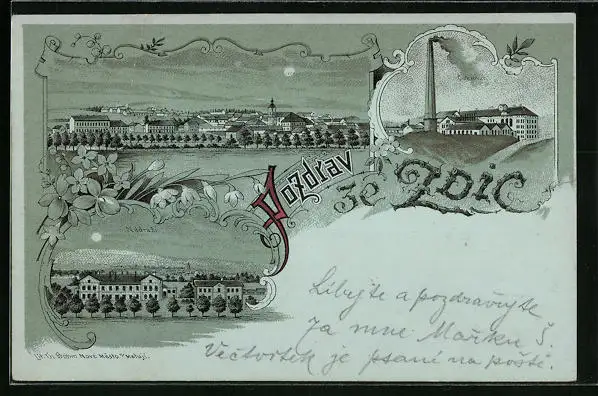 Pozdrav
ze Zdic
Nádraží
Líbejte a pozdravujte
za mne Mařku Š.
Večtvrtek je psaní na poště.
Lit. Th. Böhm Nové Město n/Metují.